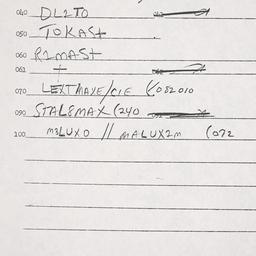 040 DL2TO
050 TOKAST
060 R2MAST
061 +
070 LEXTMAXE/CIE (052010
090 STAL8MAX (240
100 M3LUXO // MALUX2M (072